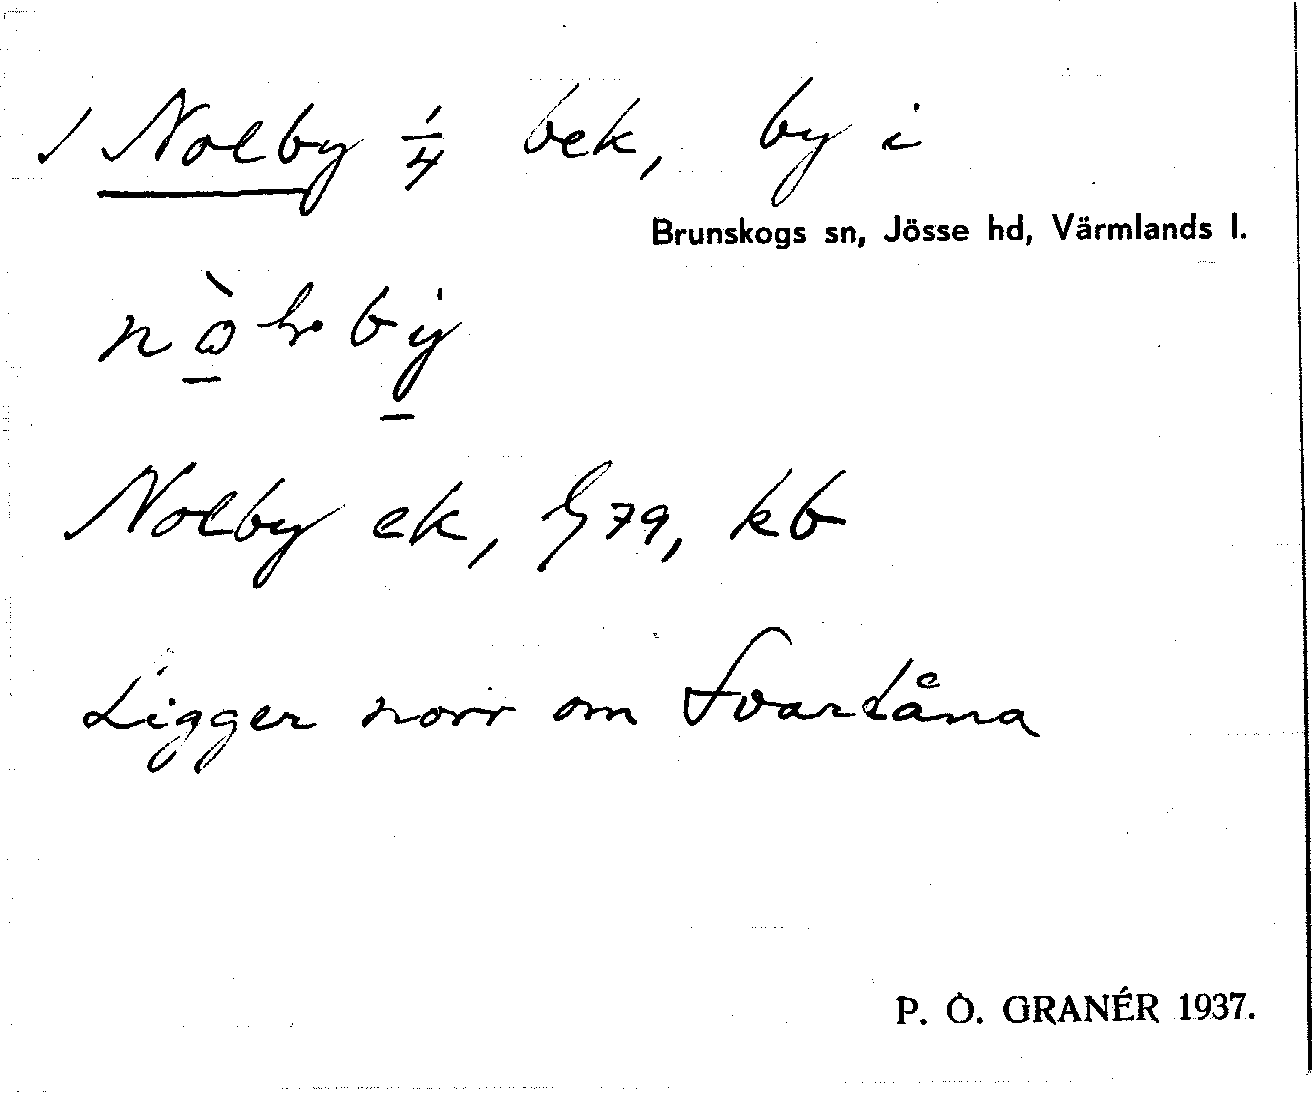 / Nolby 1/4 bek, by i
Brunskogs sn, Jösse hd, Värmlands l.
Nolby ek, G79, kb
Ligger norr om Svartåna
P. O. GRANÉR 1937.